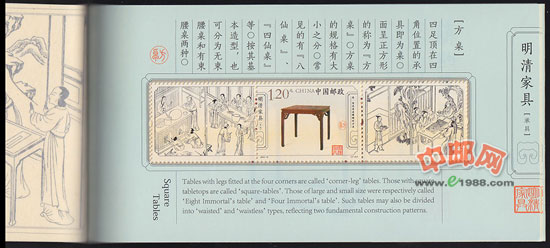 明清家具
【承具】
【方桌】
四足顶在四
角位置的承
具即为桌〇
面呈正方形
的称为『方
桌』〇方桌
的规格有大
小之分〇常
见的有『八
仙桌』、
『四仙桌』
等〇按其基
本造型，也
可分为无束
腰桌和有束
腰桌两种〇
120分
CHINA 中国邮政
明清家具
Square
Tables
Tables with legs fitted at the four corners are called "corner-leg" tables. Those with
tabletops are called "square-tables". Those of large and small size were respectively called
"Eight Immortal's table" and "Four Immortal's table". Such tables may also be divided
into "waisted" and "waistless" types, reflecting two fundamental construction patterns.
中邮网
www.e1988.com